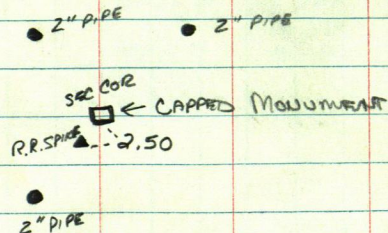 2" PIPE
2" PIPE
SEC COR
← CAPPED MONUMENT
R.R. SPIKE
2.50
2" PIPE